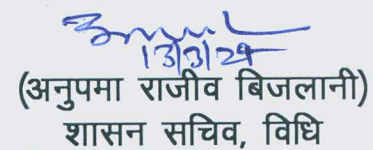 13/3/24
(अनुपमा राजीव बिजलानी)
शासन सचिव, विधि